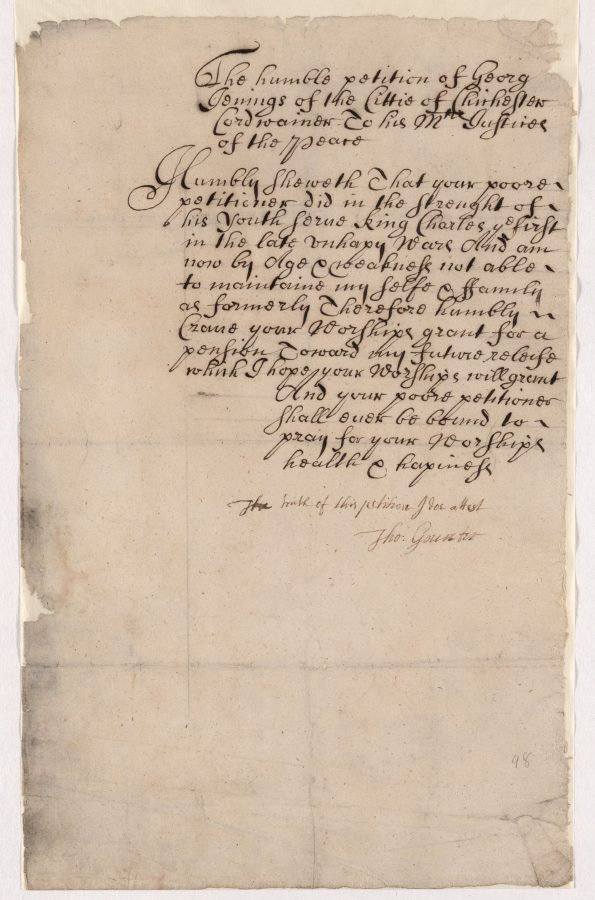 The humble petition of Georg
Jenings of the Cittie of Chichester
Cordwainer To his Mties Justices
of the Peace
Humbly sheweth That your poore
petitioner did in the strenght of
his Youth serve King Charles ye first
in the late vnhapy Wars And am
now by Age & weakness not able
to maintaine my selfe & ffamily
as formerly Therefore humbly
Crave your Worships grant for a
pension Toward my future releife
which I hope your Worships will grant
And your poore petitioner
shall ever be bound to
pray for your Worships
health & hapiness
The truth of this petition I doe attest
Tho: Gounter
98